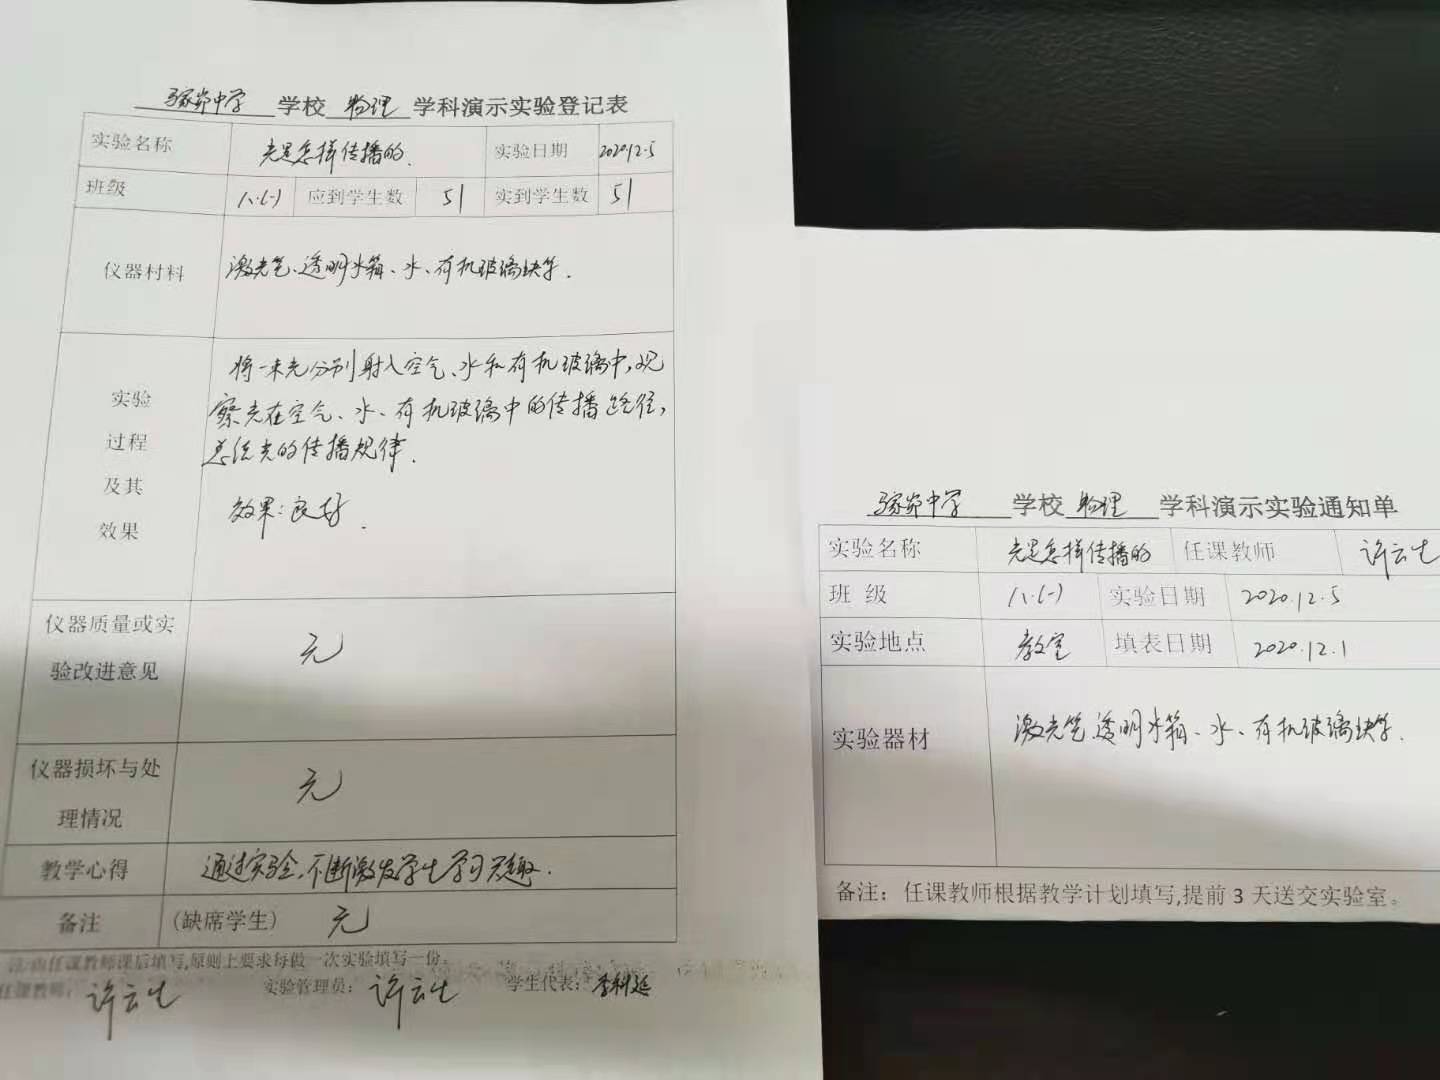 中学 学校 物理 学科演示实验登记表
实验名称 光是怎样传播的. 实验日期 2020.12.5
班级 八.(一) 应到学生数 51 实到学生数 51
仪器材料 激光笔、透明水箱、水、有机玻璃块等.
实验
过程
及其
效果
将一束光分别射入空气、水和有机玻璃中,观
察光在空气、水、有机玻璃中的传播路径,
总结光的传播规律.
效果:良好.
仪器质量或实
验改进意见
无
仪器损坏与处
理情况
无
教学心得 通过实验,不断激发学生学习兴趣.
备注 (缺席学生) 无
注:由任课教师课后填写,原则上要求每做一次实验填写一份。
任课教师: 许云生 实验管理员: 许云生 学生代表: 李科延
中学 学校 物理 学科演示实验通知单
实验名称 光是怎样传播的 任课教师 许云生
班 级 八.(一) 实验日期 2020.12.5
实验地点 教室 填表日期 2020.12.1
实验器材 激光笔、透明水箱、水、有机玻璃块等.
备注: 任课教师根据教学计划填写,提前 3 天送交实验室。